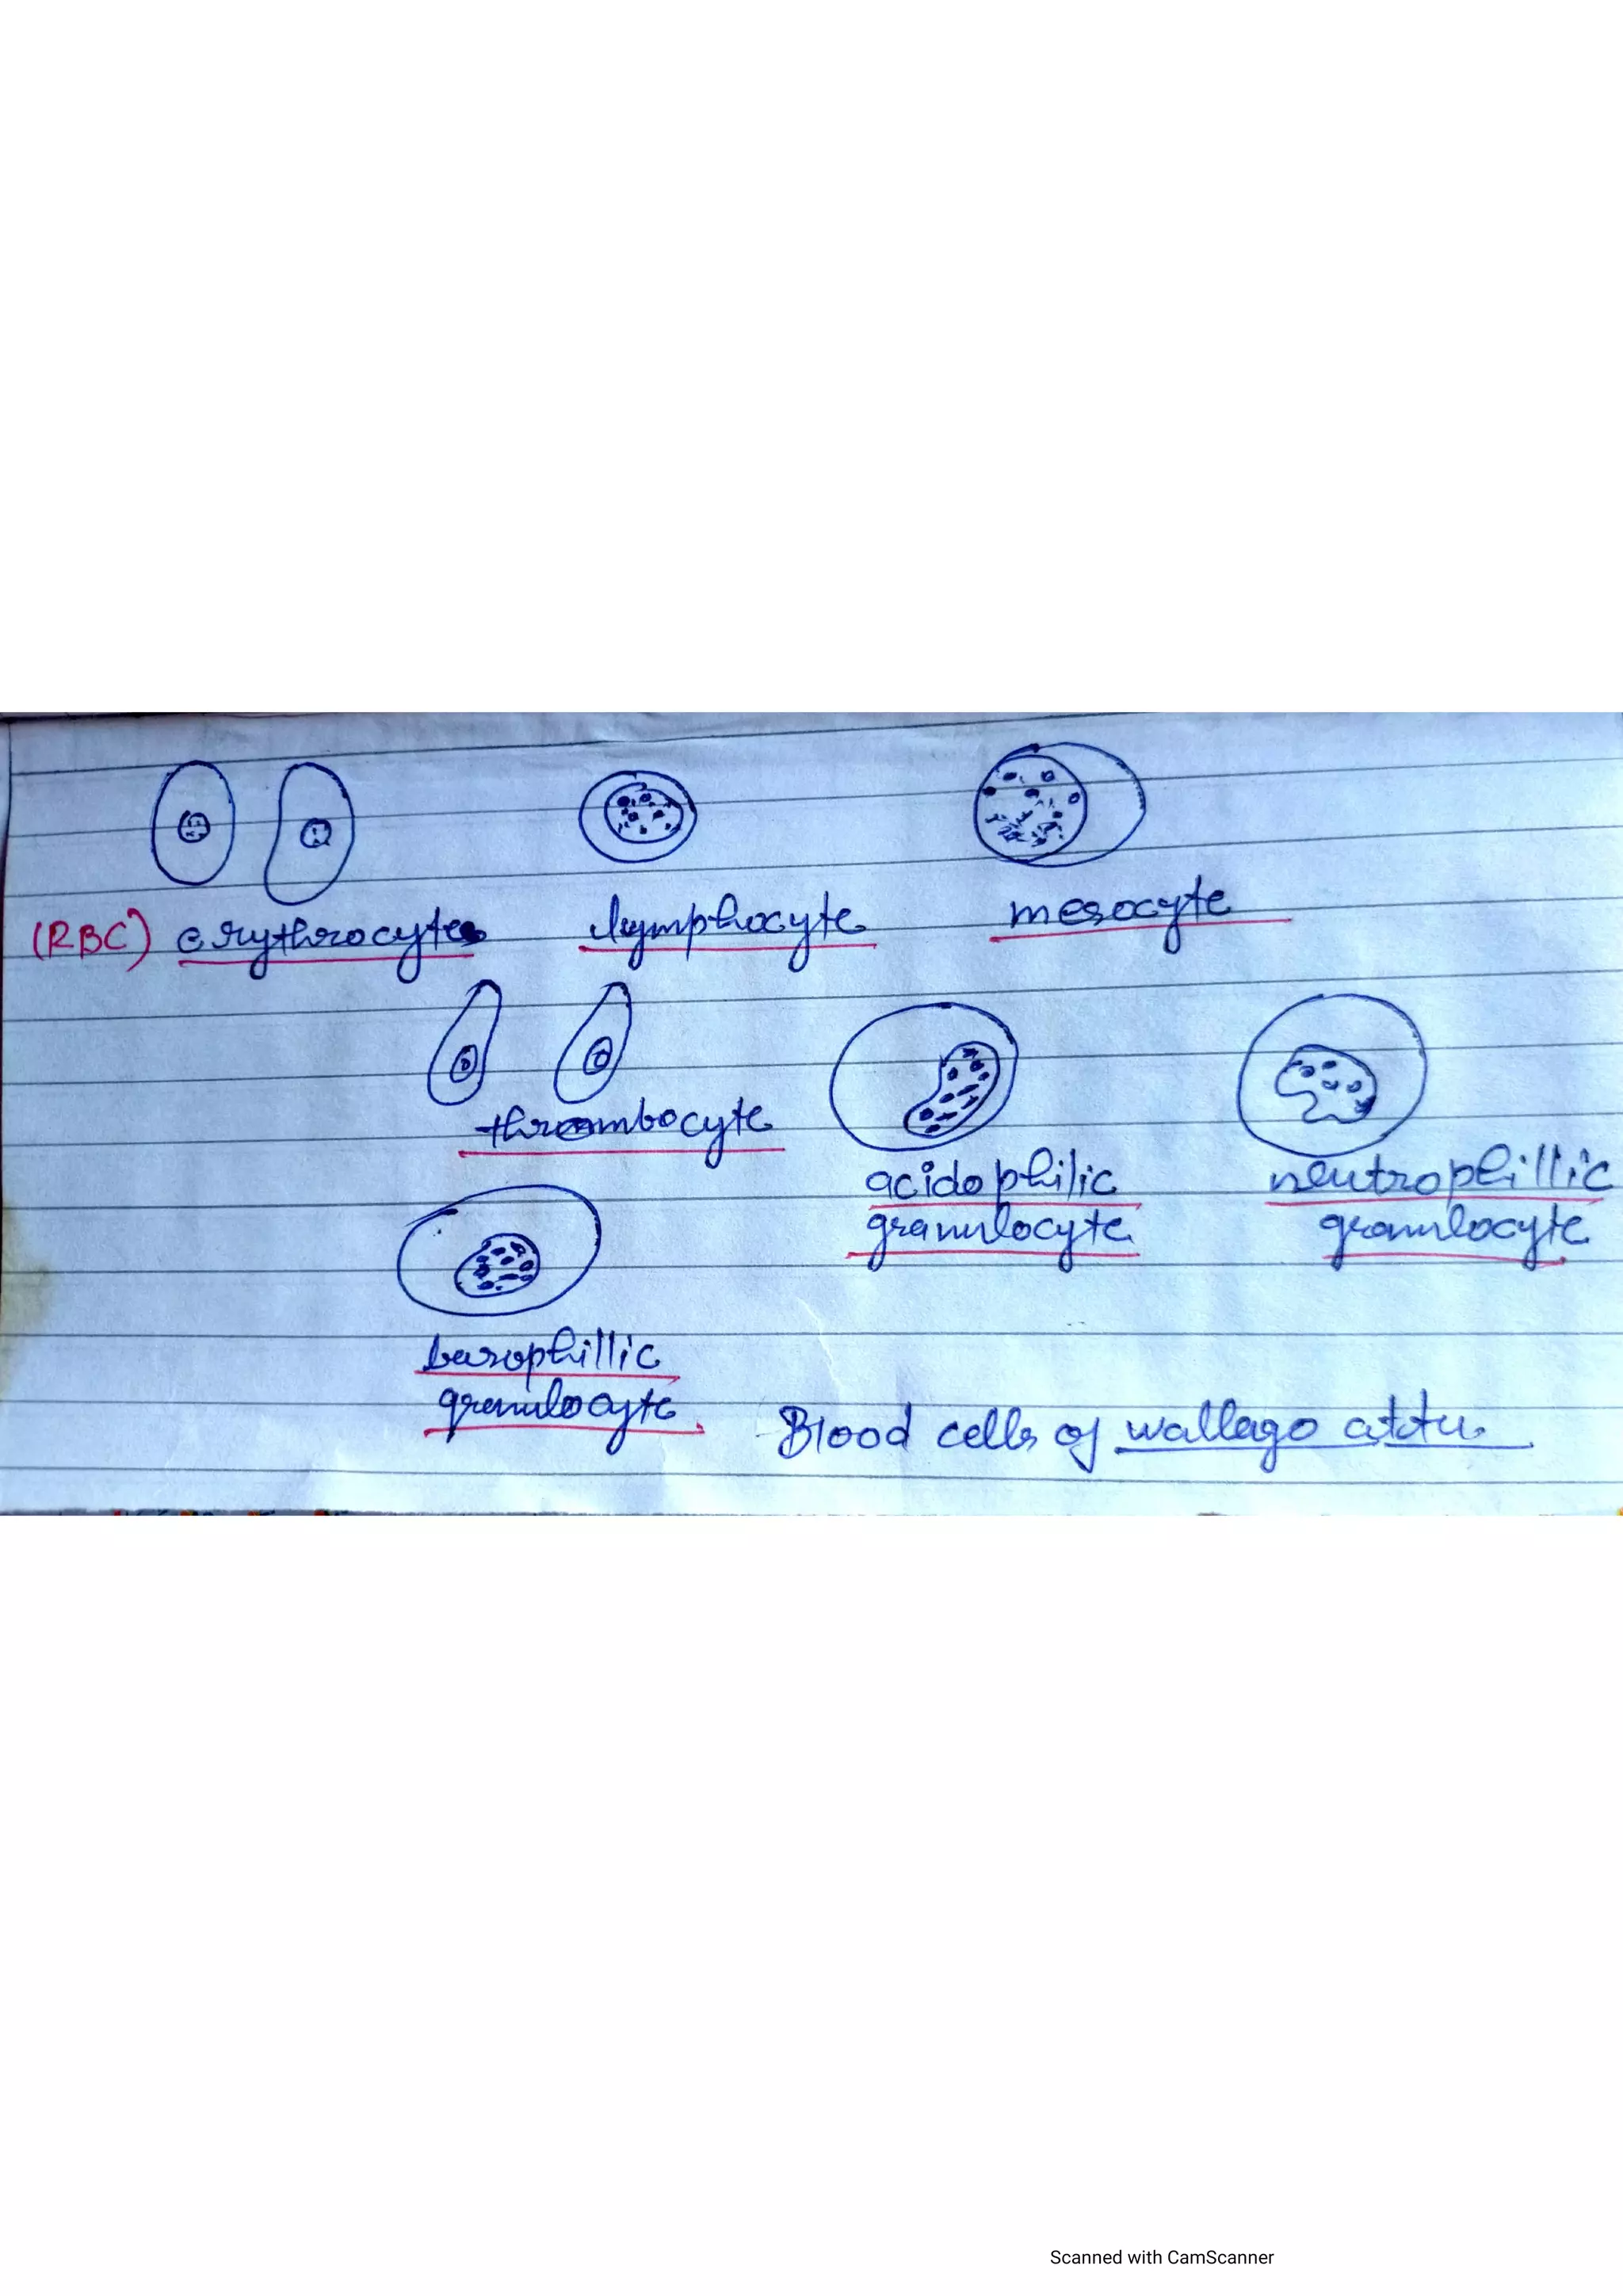 (RBC) erythrocytes lymphocyte mesocyte
thrombocyte
acidophilic neutrophillic
granulocyte granulocyte
basophillic
granulocyte
Blood cells of wallago attu.
Scanned with CamScanner